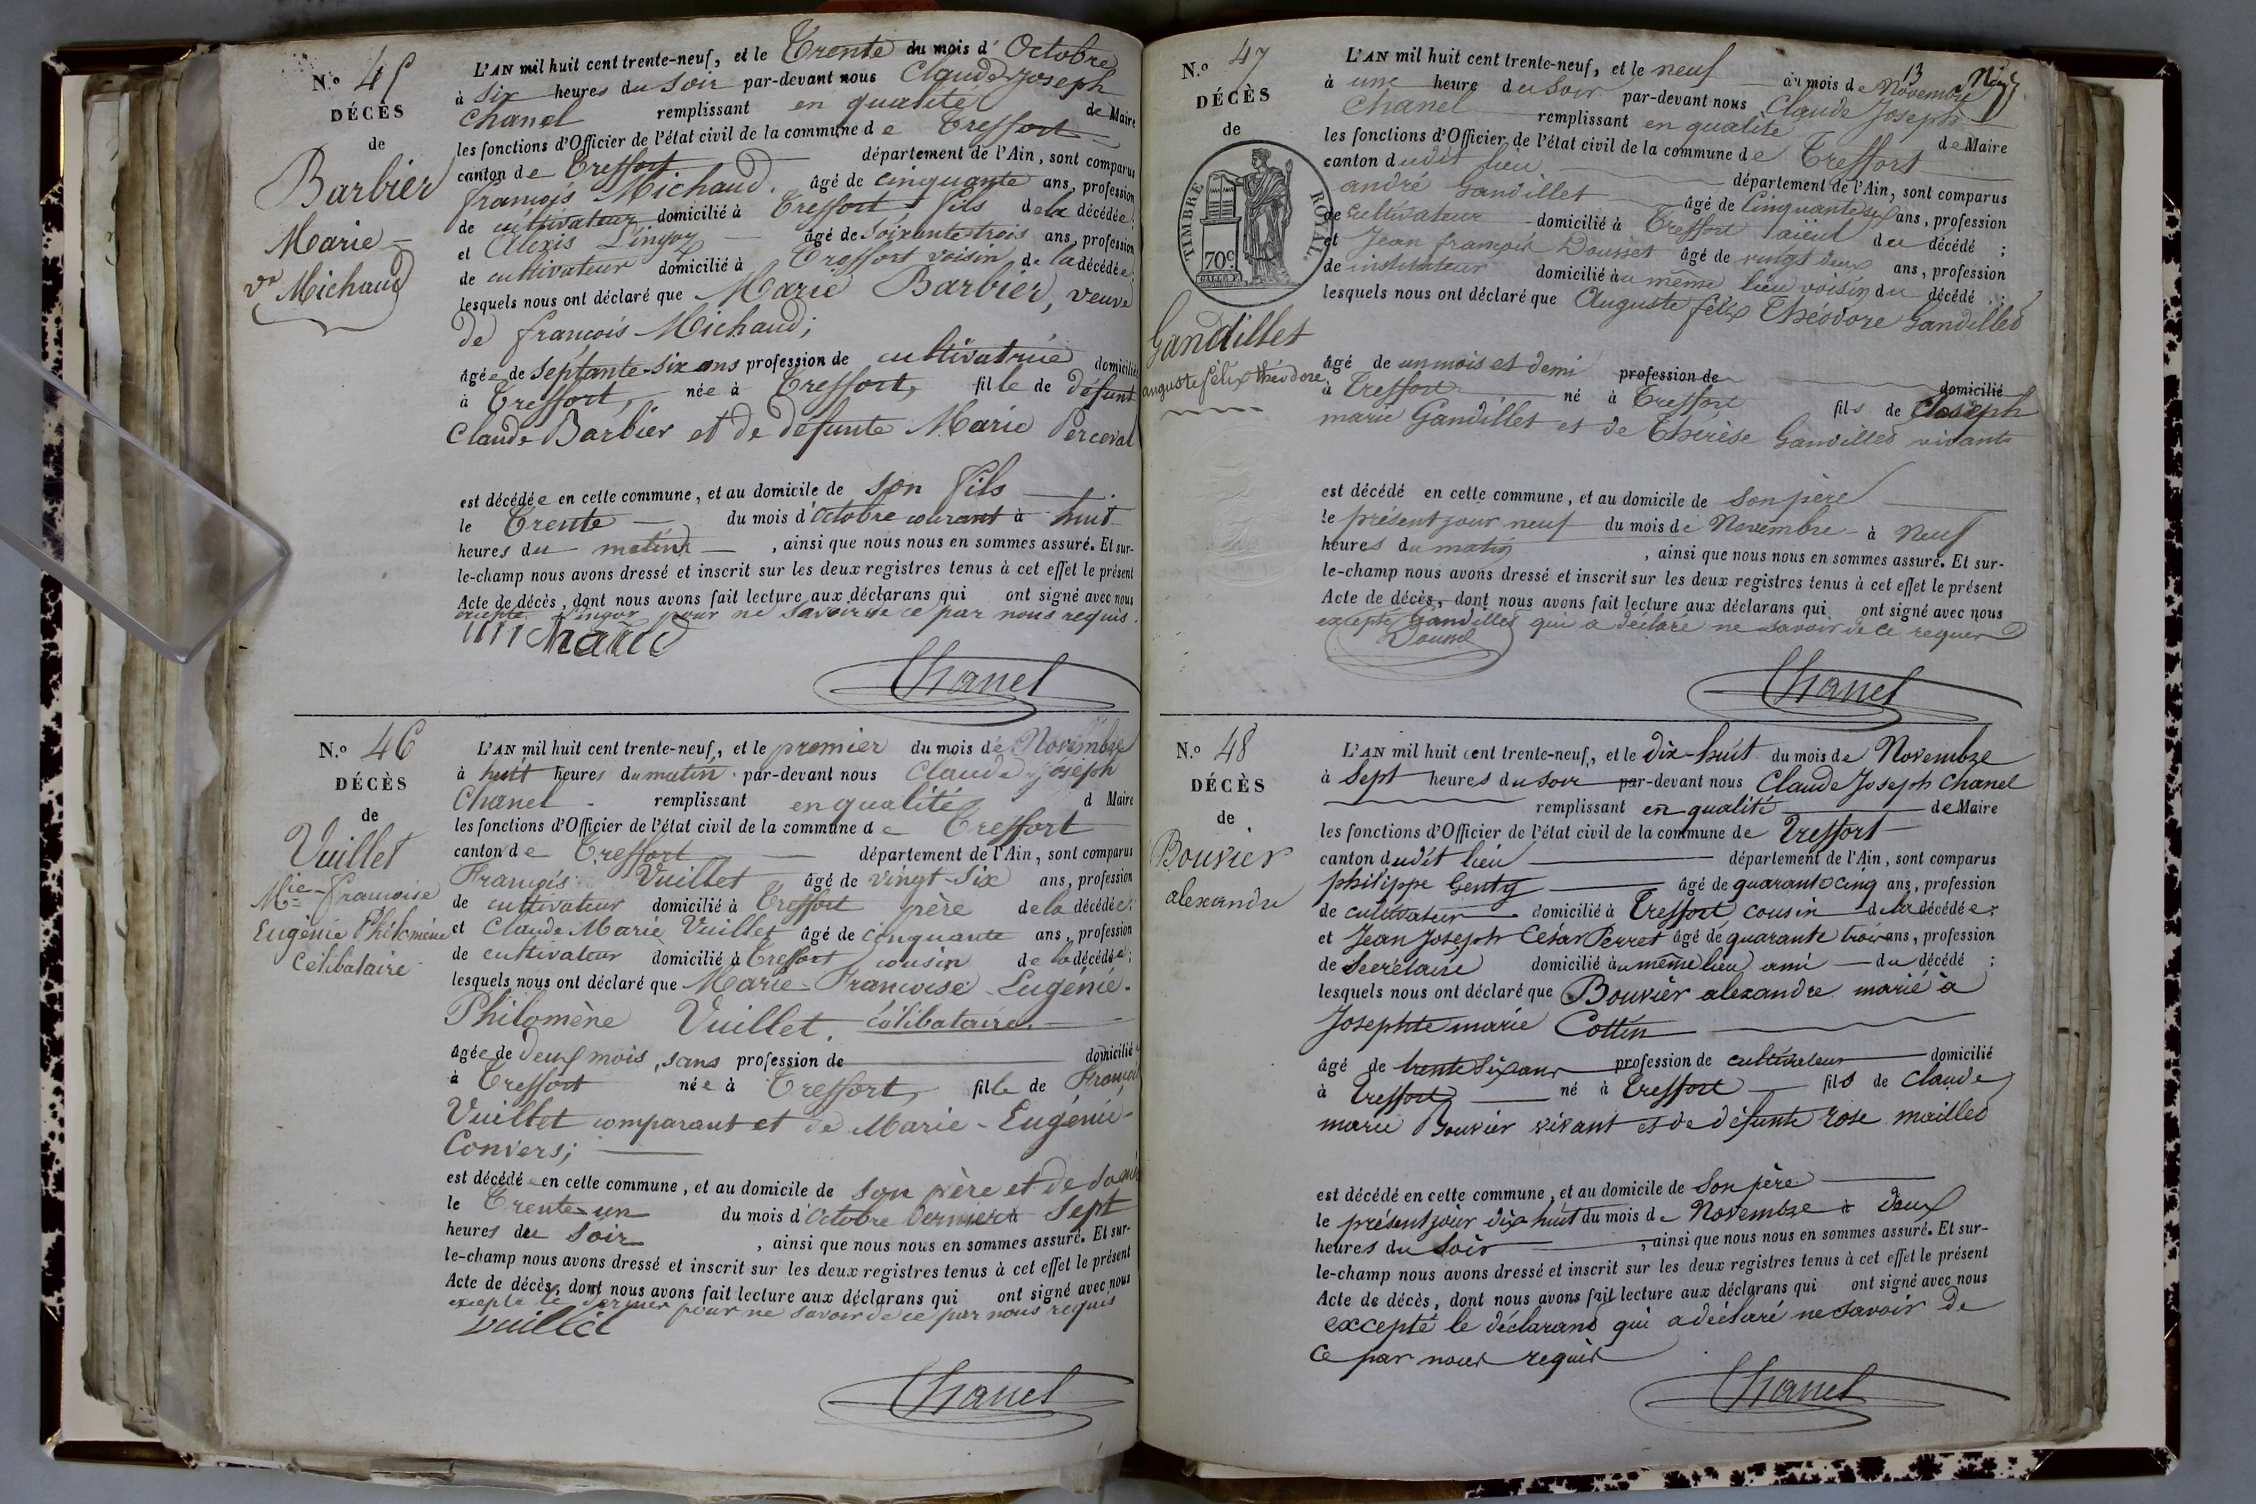 N.º 45
DÉCÈS
de
Barbier
Marie
vᵉ Michaud
L'AN mil huit cent trente-neuf, et le Trente du mois d'Octobre
à Six heures du Soir par-devant nous Claude-Joseph
Chanel remplissant en qualité de Maire
les fonctions d'Officier de l'état civil de la commune de Treffort
canton de Treffort département de l'Ain, sont comparus
françois Michaud âgé de cinquante ans, profession
de cultivateur domicilié à Treffort fils de la décédée ;
et Alexis Lingoy âgé de Soixante-trois ans, profession
de cultivateur domicilié à Treffort voisin de la décédée ;
lesquels nous ont déclaré que Marie Barbier, veuve
de françois Michaud ;
âgée de Septante-six ans profession de cultivatrice domiciliée
à Treffort, née à Treffort, fille de défunt
Claude Barbier et de défunte Marie Perceval
est décédée en cette commune, et au domicile de son fils
le Trente du mois d'Octobre courant à huit
heures du matin , ainsi que nous nous en sommes assuré. Et sur-
le-champ nous avons dressé et inscrit sur les deux registres tenus à cet effet le présent
Acte de décès, dont nous avons fait lecture aux déclarans qui ont signé avec nous
excepté Lingoy pour ne savoir de ce par nous requis.
Michaud
Chanel
N.º 46
DÉCÈS
de
Vuillet
Mie-françoise
Eugènie Philomène
Célibataire
L'AN mil huit cent trente-neuf, et le premier du mois de Novembre
à huit heures du matin par-devant nous Claude-Joseph
Chanel remplissant en qualité d Maire
les fonctions d'Officier de l'état civil de la commune de Treffort
canton de Treffort département de l'Ain, sont comparus
François Vuillet âgé de vingt-Six ans, profession
de cultivateur domicilié à Treffort père de la décédée ;
et Claude Marie Vuillet âgé de cinquante ans, profession
de cultivateur domicilié à Treffort cousin de la décédée ;
lesquels nous ont déclaré que Marie-Françoise Eugénie-
Philomène Vuillet, Célibataire
âgée de deux mois, sans profession de domicilié
à Treffort née à Treffort, fille de François
Vuillet comparant et de Marie-Eugénie-
Convers ;
est décédée en cette commune, et au domicile de son père et de sa mère
le Trente-un du mois d'Octobre dernier à Sept
heures du Soir , ainsi que nous nous en sommes assuré. Et sur-
le-champ nous avons dressé et inscrit sur les deux registres tenus à cet effet le présent
Acte de décès, dont nous avons fait lecture aux déclarans qui ont signé avec nous
excepté le dernier pour ne savoir de ce par nous requis
vuillet
Chanel
13
N.º 47
DÉCÈS
de
TIMBRE ROYAL
70c
Gandillet
auguste félix théodore
L'AN mil huit cent trente-neuf, et le neuf du mois de Novembre
à une heure du soir par-devant nous Claude Joseph
Chanel remplissant en qualité de Maire
les fonctions d'Officier de l'état civil de la commune de Treffort
canton dudit lieu département de l'Ain, sont comparus
andré Gandillet âgé de Cinquante six ans, profession
de cultivateur domicilié à Treffort aïeul du décédé ;
et Jean françois Dousset âgé de vingt deux ans, profession
de instituteur domicilié au même lieu voisin du décédé ;
lesquels nous ont déclaré que Auguste félix Théodore Gandillet
âgé de un mois et demi profession de domicilié
à Treffort né à Treffort fils de Joseph
marie Gandillet et de Thérèse Gandillet vivants
est décédé en cette commune, et au domicile de son père
le présent jour neuf du mois de Novembre à Neuf
heures du matin , ainsi que nous nous en sommes assuré. Et sur-
le-champ nous avons dressé et inscrit sur les deux registres tenus à cet effet le présent
Acte de décès, dont nous avons fait lecture aux déclarans qui ont signé avec nous
excepté Gandillet qui a déclaré ne savoir de ce requis
Dousset
Chanel
N.º 48
DÉCÈS
de
Bouvier
alexandre
L'AN mil huit cent trente-neuf, et le dix-huit du mois de Novembre
à Sept heures du soir par-devant nous Claude Joseph Chanel
remplissant en qualité de Maire
les fonctions d'Officier de l'état civil de la commune de Treffort
canton dudit lieu département de l'Ain, sont comparus
philippe Genty âgé de quarante cinq ans, profession
de cultivateur domicilié à Treffort cousin de la décédée ;
et Jean Joseph César Perret âgé de quarante trois ans, profession
de Secrétaire domicilié au même lieu ami du décédé ;
lesquels nous ont déclaré que Bouvier alexandre marié à
Josephte marie Cottin
âgé de trente six ans profession de cultivateur domicilié
à Treffort né à Treffort fils de Claude
marie Bouvier vivant et de défunte rose maillet
est décédé en cette commune, et au domicile de Son père
le présent jour dix huit du mois de Novembre à deux
heures du Soir , ainsi que nous nous en sommes assuré. Et sur-
le-champ nous avons dressé et inscrit sur les deux registres tenus à cet effet le présent
Acte de décès, dont nous avons fait lecture aux déclarans qui ont signé avec nous
excepté le déclarant qui a déclaré ne savoir de
ce par nous requis
Chanel